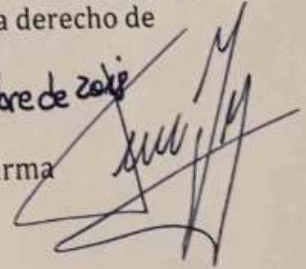 a derecho de
bre de 2018
rma